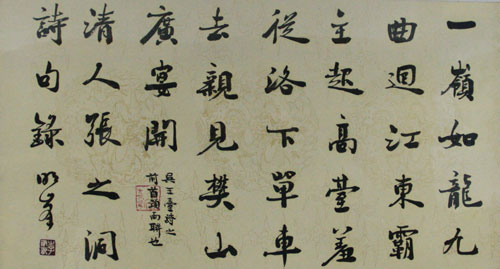 一嶺如龍九
曲迴江東霸
主起高臺羞
從洛下單車
去親見樊山
廣宴開
吳王臺詩之
前首頭兩聯也
清人張之洞
詩句錄明峯